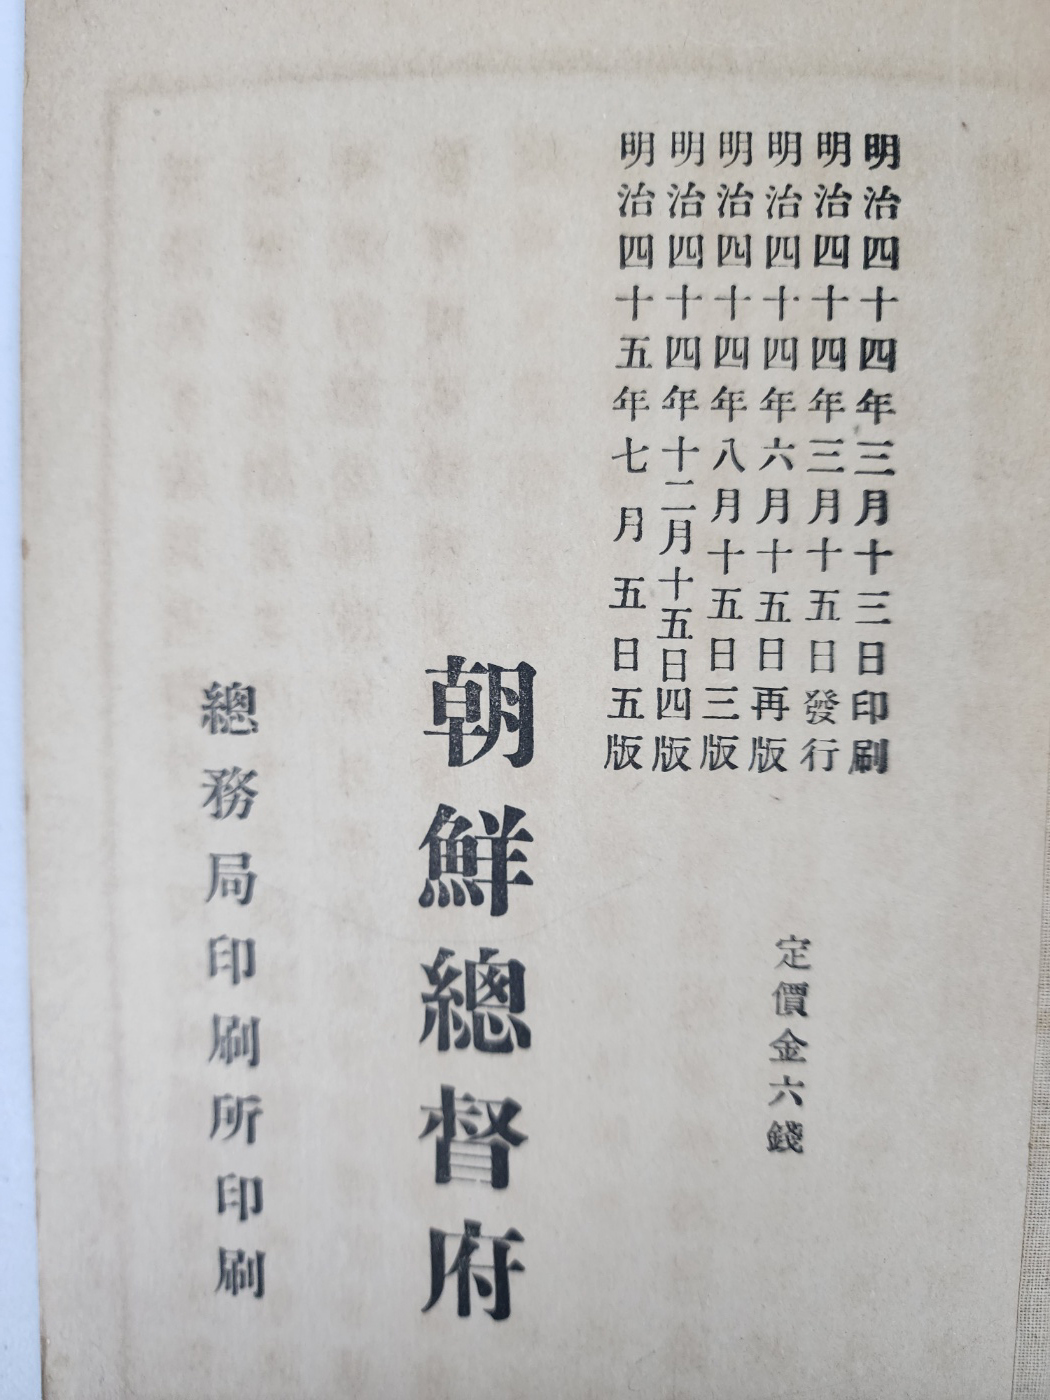 明治四十四年三月十三日印刷
明治四十四年三月十五日發行
明治四十四年六月十五日再版
明治四十四年八月十五日三版
明治四十四年十二月十五日四版
明治四十五年七月五日五版
定價金六錢
朝鮮總督府
總務局印刷所印刷